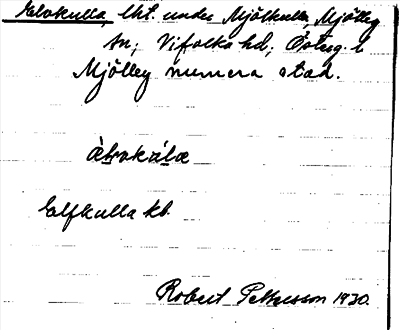 Elvkulla, lht. under Mjölkulla, Mjölby
sn; Vifolka hd; Östug. l
Mjölby numera stad.
Elfkulla kb.
Robert Pettersson 1930.